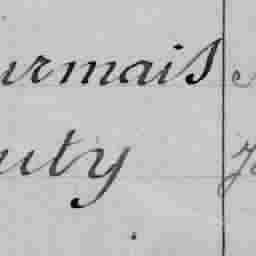 urmais
uty